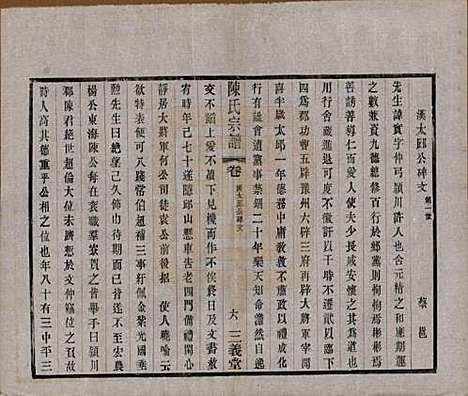 漢太邱公碑文 第一世
蔡邕
先生諱實字仲弓潁川許人也含元精之和應期運
之數兼資九德總修百行於鄉黨則恂恂焉彬彬焉
善誘善導仁而愛人使夫少長咸安懷之其為道也
用行舍藏進退可度不徼訐以干時不遷貳以臨下
四為郡功曹五辟豫州六辟三府再辟大將軍宰聞
喜半歲太邱一年德務中庸敎敦不肅政以禮成化
行有謐會遭黨事禁錮二十年樂天知命澹然自逸
陳氏宗譜 卷 漢太邱公碑文 六 三義堂
交不諂上愛不瀆下見機而作不俟終日及文書赦
有時年已七十遂隱邱山懸車告老四門備禮閑心
靜居大將軍何公司徒袁公前後招辟使人曉喻云
欲特表便可入踐常伯超補三事紆佩金紫光國垂
勳先生曰絕望已久飾巾待期而已皆遂不至宏農
楊公東海陳公每在袞職羣寮賀之皆舉手曰潁川
陳君絕世超倫大位未躋慙於文仲竊位之負故
時人高其德重乎公相之位也年八十有三中平三